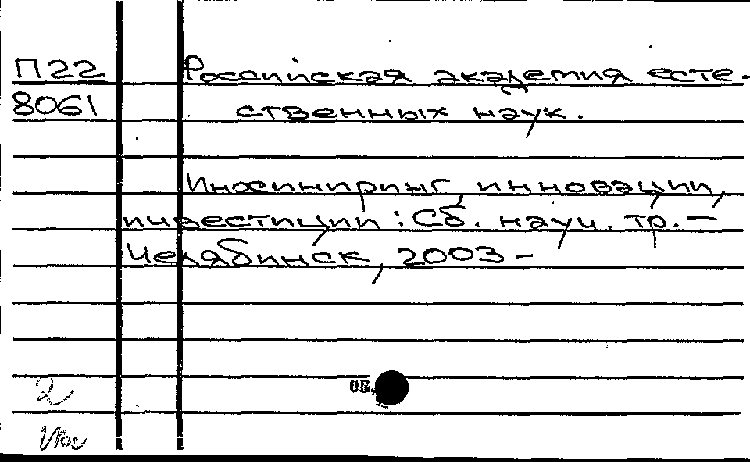 П22 Российская академия есте-
8061 ственных наук.
Инжиниринг, инновации,
инвестиции: Сб. науч. тр. –
Челябинск, 2003 –
2